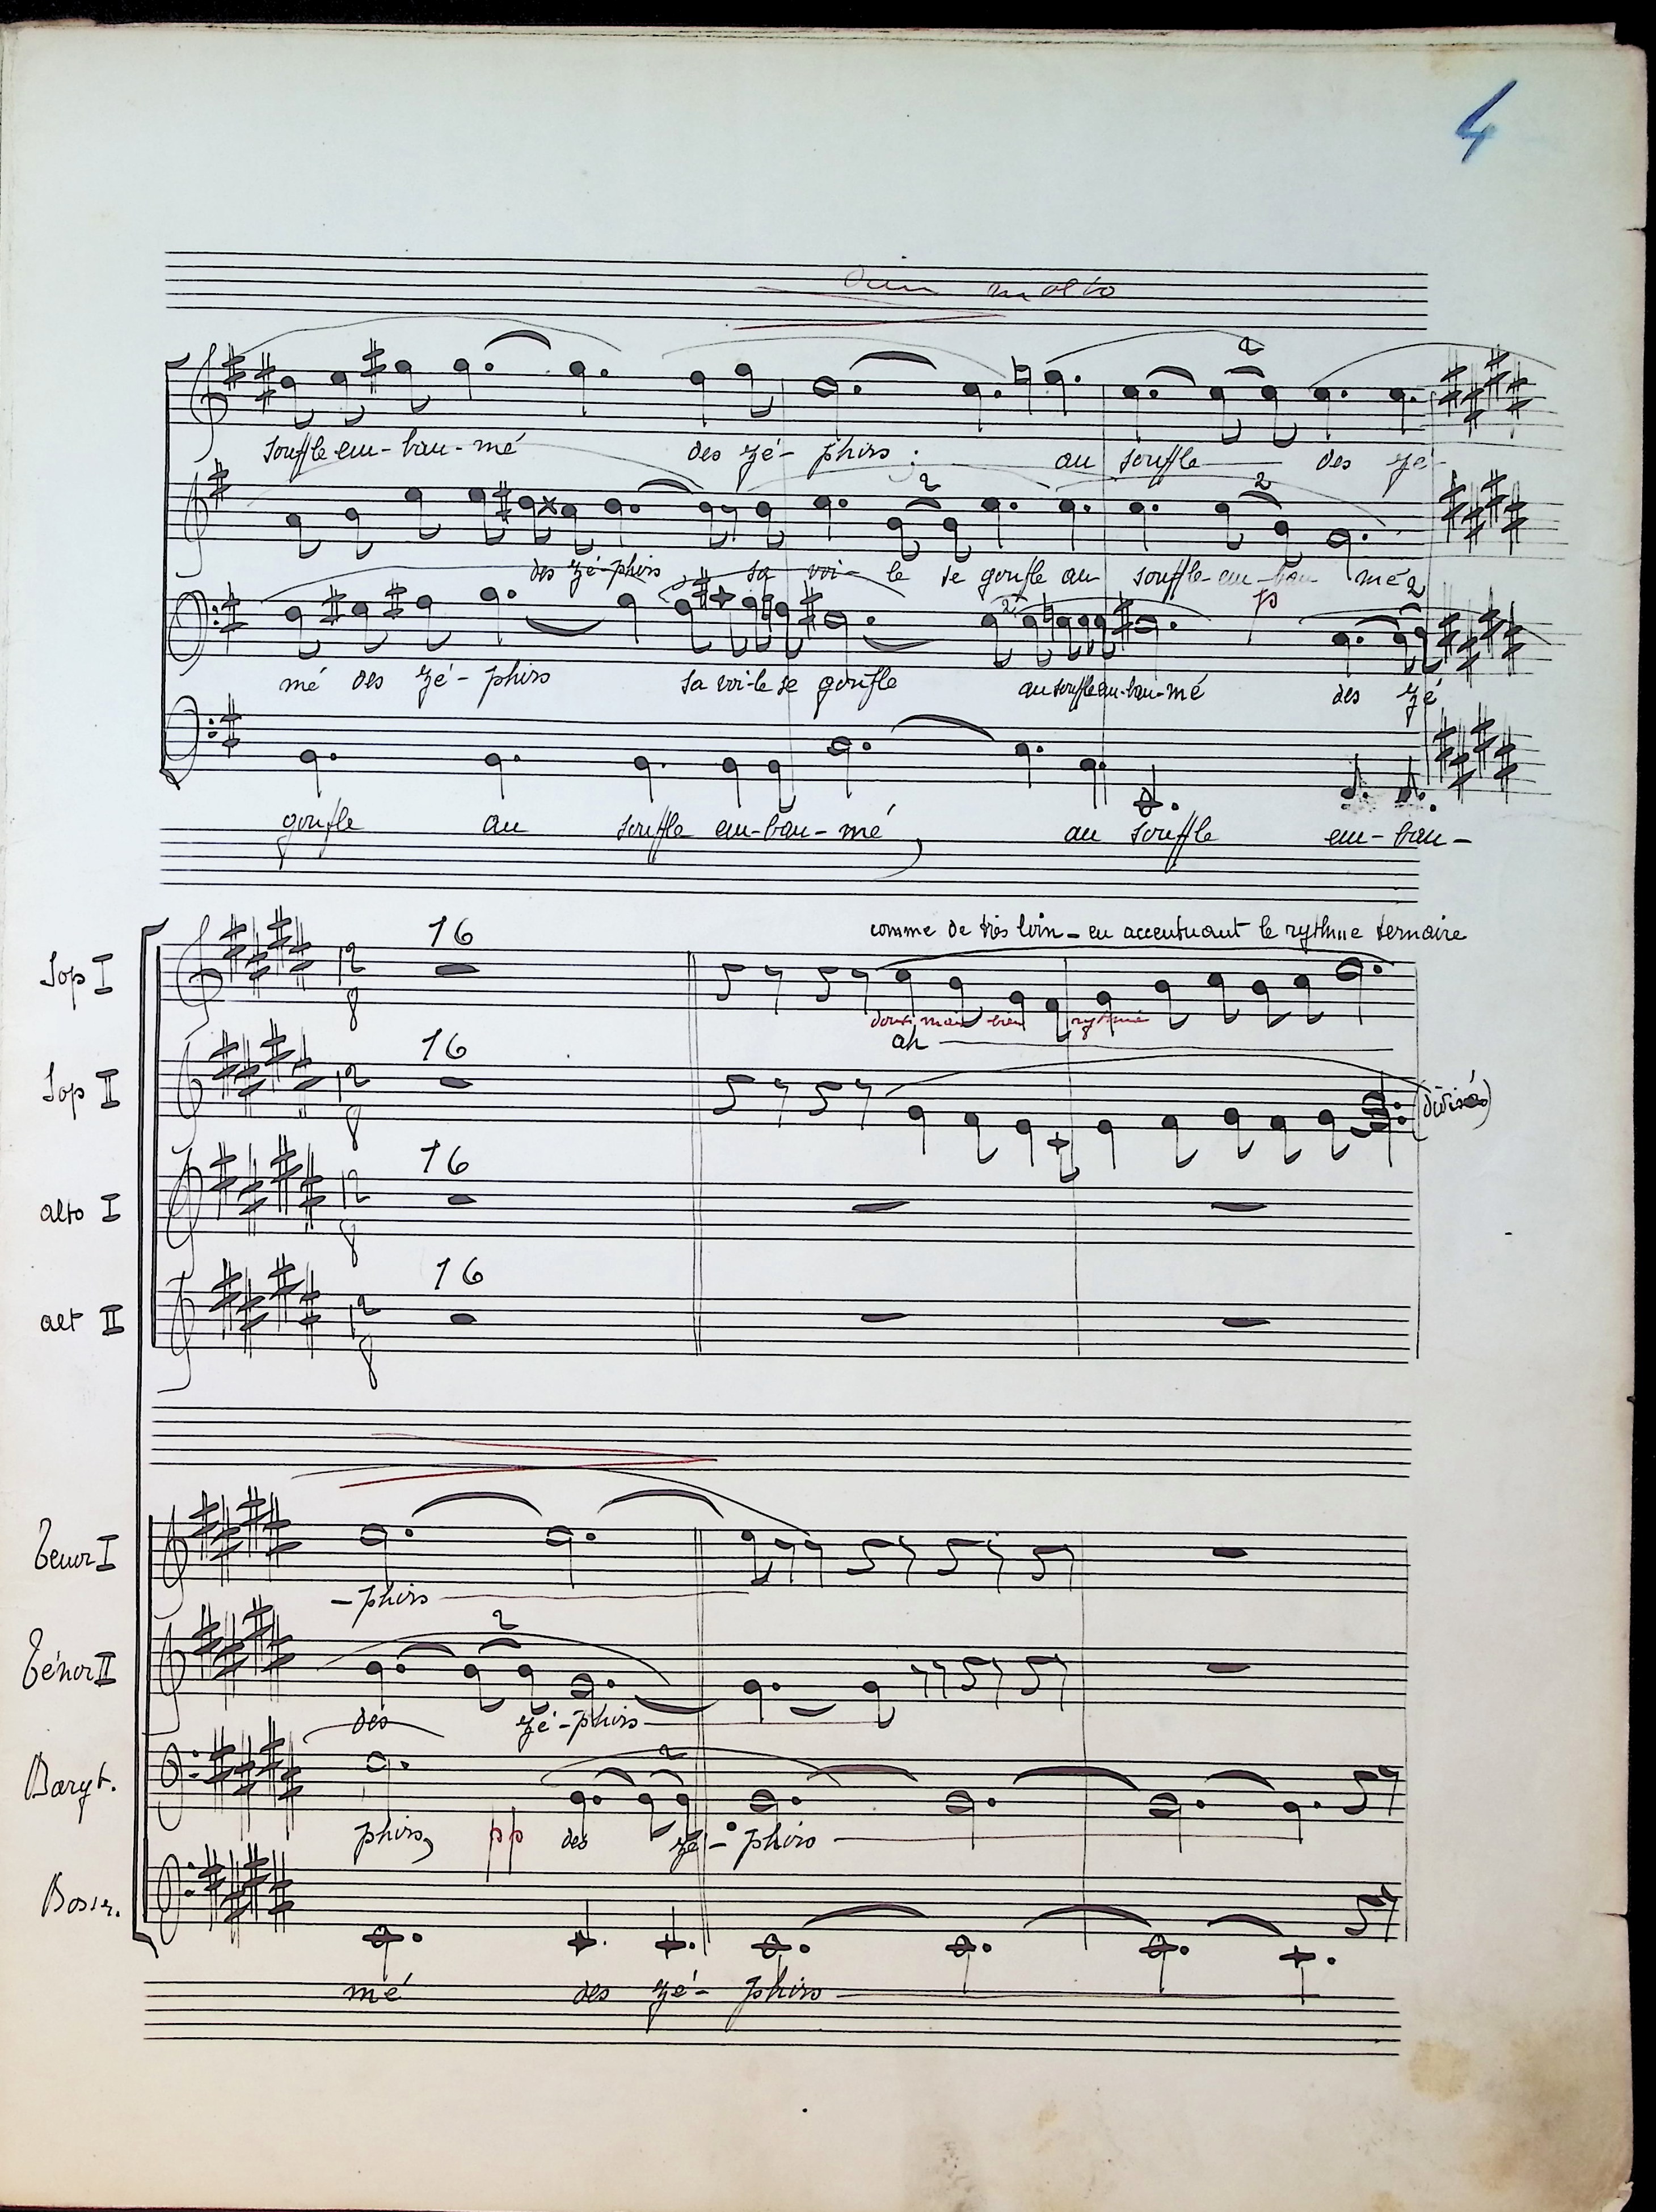 4
dim molto
2
souffle em-bau-mé des zé-phirs; au souffle des zé-
2 2
des zé-phirs sa voi-le se gonfle au souffle em-bau mé
p
2 2
mé des zé-phirs sa voi-le se gonfle au souffle em-bau-mé des zé
gonfle au souffle em-bau-mé, au souffle em-bau-
comme de très loin - en accentuant le rythme ternaire
Sop I 12 8 16
doux mais bien rythmé
ah
Sop II 12 8 16 (divisés)
alto I 12 8 16
alt II 12 8 16
Tenor I
-phirs
2
Ténor II
des zé-phirs
2
Baryt.
phirs, pp des zé-phirs
Basse.
mé des zé-phirs